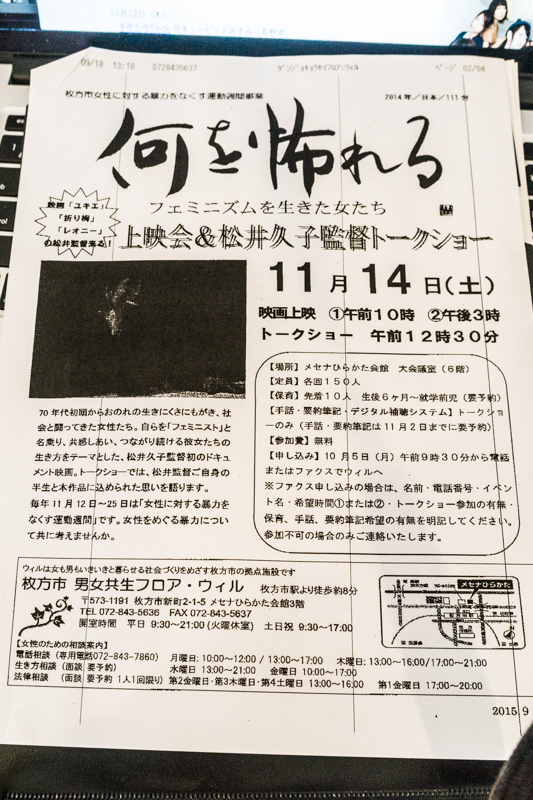 11月12日（木）
09/18 13:18 0728435637 ダンジョキョウセイフロア;ウィル ページ 02/04
枚方市女性に対する暴力をなくす運動週間事業 2014年/日本/111分
何を怖れる
フェミニズムを生きた女たち
映画「ユキエ」
「折り梅」
「レオニー」
の松井監督来る！
上映会＆松井久子監督トークショー
11月14日(土)
映画上映 ①午前10時 ②午後3時
トークショー 午前12時30分
【場所】メセナひらかた会館 大会議室（6階）
【定員】各回150人
【保育】先着10人 生後6ヶ月〜就学前児（要予約）
【手話・要約筆記・デジタル補聴システム】トークショ
ーのみ（手話・要約筆記は11月2日までに要予約）
【参加費】無料
【申し込み】10月5日（月）午前9時30分から電話
またはファクスでウィルへ
※ファクス申し込みの場合は、名前・電話番号・イベン
ト名・希望時間①または②・トークショー参加の有無・
保育、手話、要約筆記希望の有無を明記してください。
参加不可の場合のみご連絡いたします。
70年代初頭からおのれの生きにくさにもがき、社
会と闘ってきた女性たち。自らを「フェミニスト」と
名乗り、共感しあい、つながり続ける彼女たちの
生き方をテーマとした、松井久子監督初のドキュ
メント映画。トークショーでは、松井監督ご自身の
半生と本作品に込められた思いを語ります。
毎年11月12日〜25日は「女性に対する暴力を
なくす運動週間」です。女性をめぐる暴力につい
て共に考えませんか。
ウィルは女も男もいきいきと暮らせる社会づくりをめざす枚方市の拠点施設です
枚方市 男女共生フロア・ウィル 枚方市駅より徒歩約8分
〒573-1191 枚方市新町2-1-5 メセナひらかた会館3階
TEL 072-843-5636 FAX 072-843-5637
開室時間 平日 9:30〜21:00 (火曜休室) 土日祝 9:30〜17:00
メセナひらかた
【女性のための相談案内】
電話相談（専用電話072-843-7860） 月曜日: 10:00〜12:00 / 13:00〜17:00 木曜日: 13:00〜16:00/17:00〜21:00
生き方相談（面談 要予約） 水曜日 13:00〜21:00 金曜日 10:00〜17:00
法律相談 （面談 要予約 1人1回限り） 第2金曜日・第3木曜日・第4土曜日 13:00〜16:00 第1金曜日 17:00〜20:00
2015.9